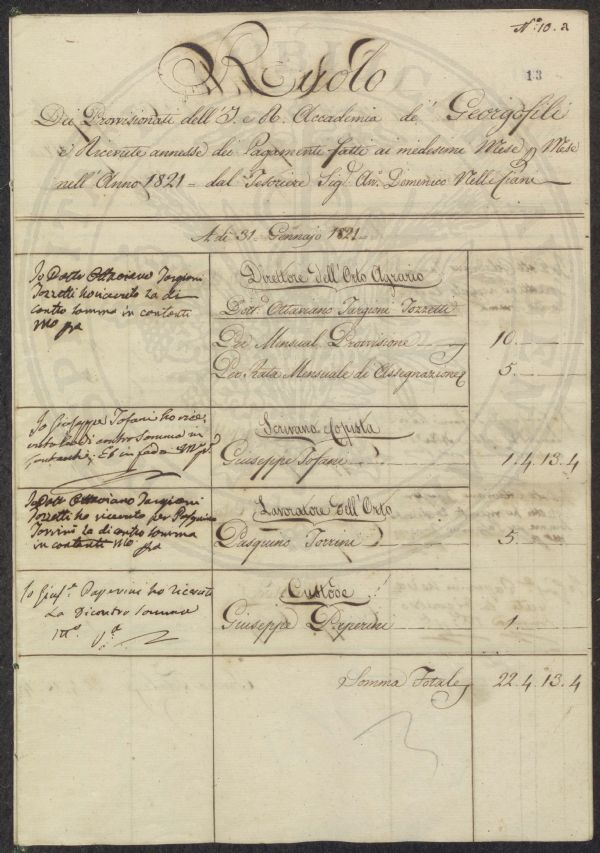 N.° 10. a
13
Ruolo
Dei Provvisionati dell'I. e R. Accademia de' Georgofili
e Ricevute annesse dei Pagamenti fatti ai medesimi Mese p Mese
nell'Anno 1821 = dal Tesoriere Sig.r An.o Domenico Nellesiani
A dì 31. Gennajo 1821.
Io Dotto Ottaviano Targioni
Tozzetti ho ricevuto la di
contro somma in contanti
Mo ppa
Direttore dell'Orto Agrario
Dott.e Ottaviano Targioni Tozzetti
Per Mensual Provvisione 10.
Per Rata Mensuale di Assegnazione 5.
Io Giuseppe Tofani ho rice,
vuto la di contro Somma in
Contanti, E in fede M.o p.a
Scrivano Copista
Giuseppe Tofani 1. 4. 13. 4
Io Dott Ottaviano Targioni
Tozzetti ho ricevuto per Pasquino
Torrini la di contro somma
in contanti Mo
ppa
Lavoratore dell'Orto
Pasquino Torrini 5.
Io Gius.e Paperini ho ricevuto
La Dicontro Somma
M.o p.a
Custode
Giuseppe Paperini 1.
Somma Totale 22. 4. 13. 4